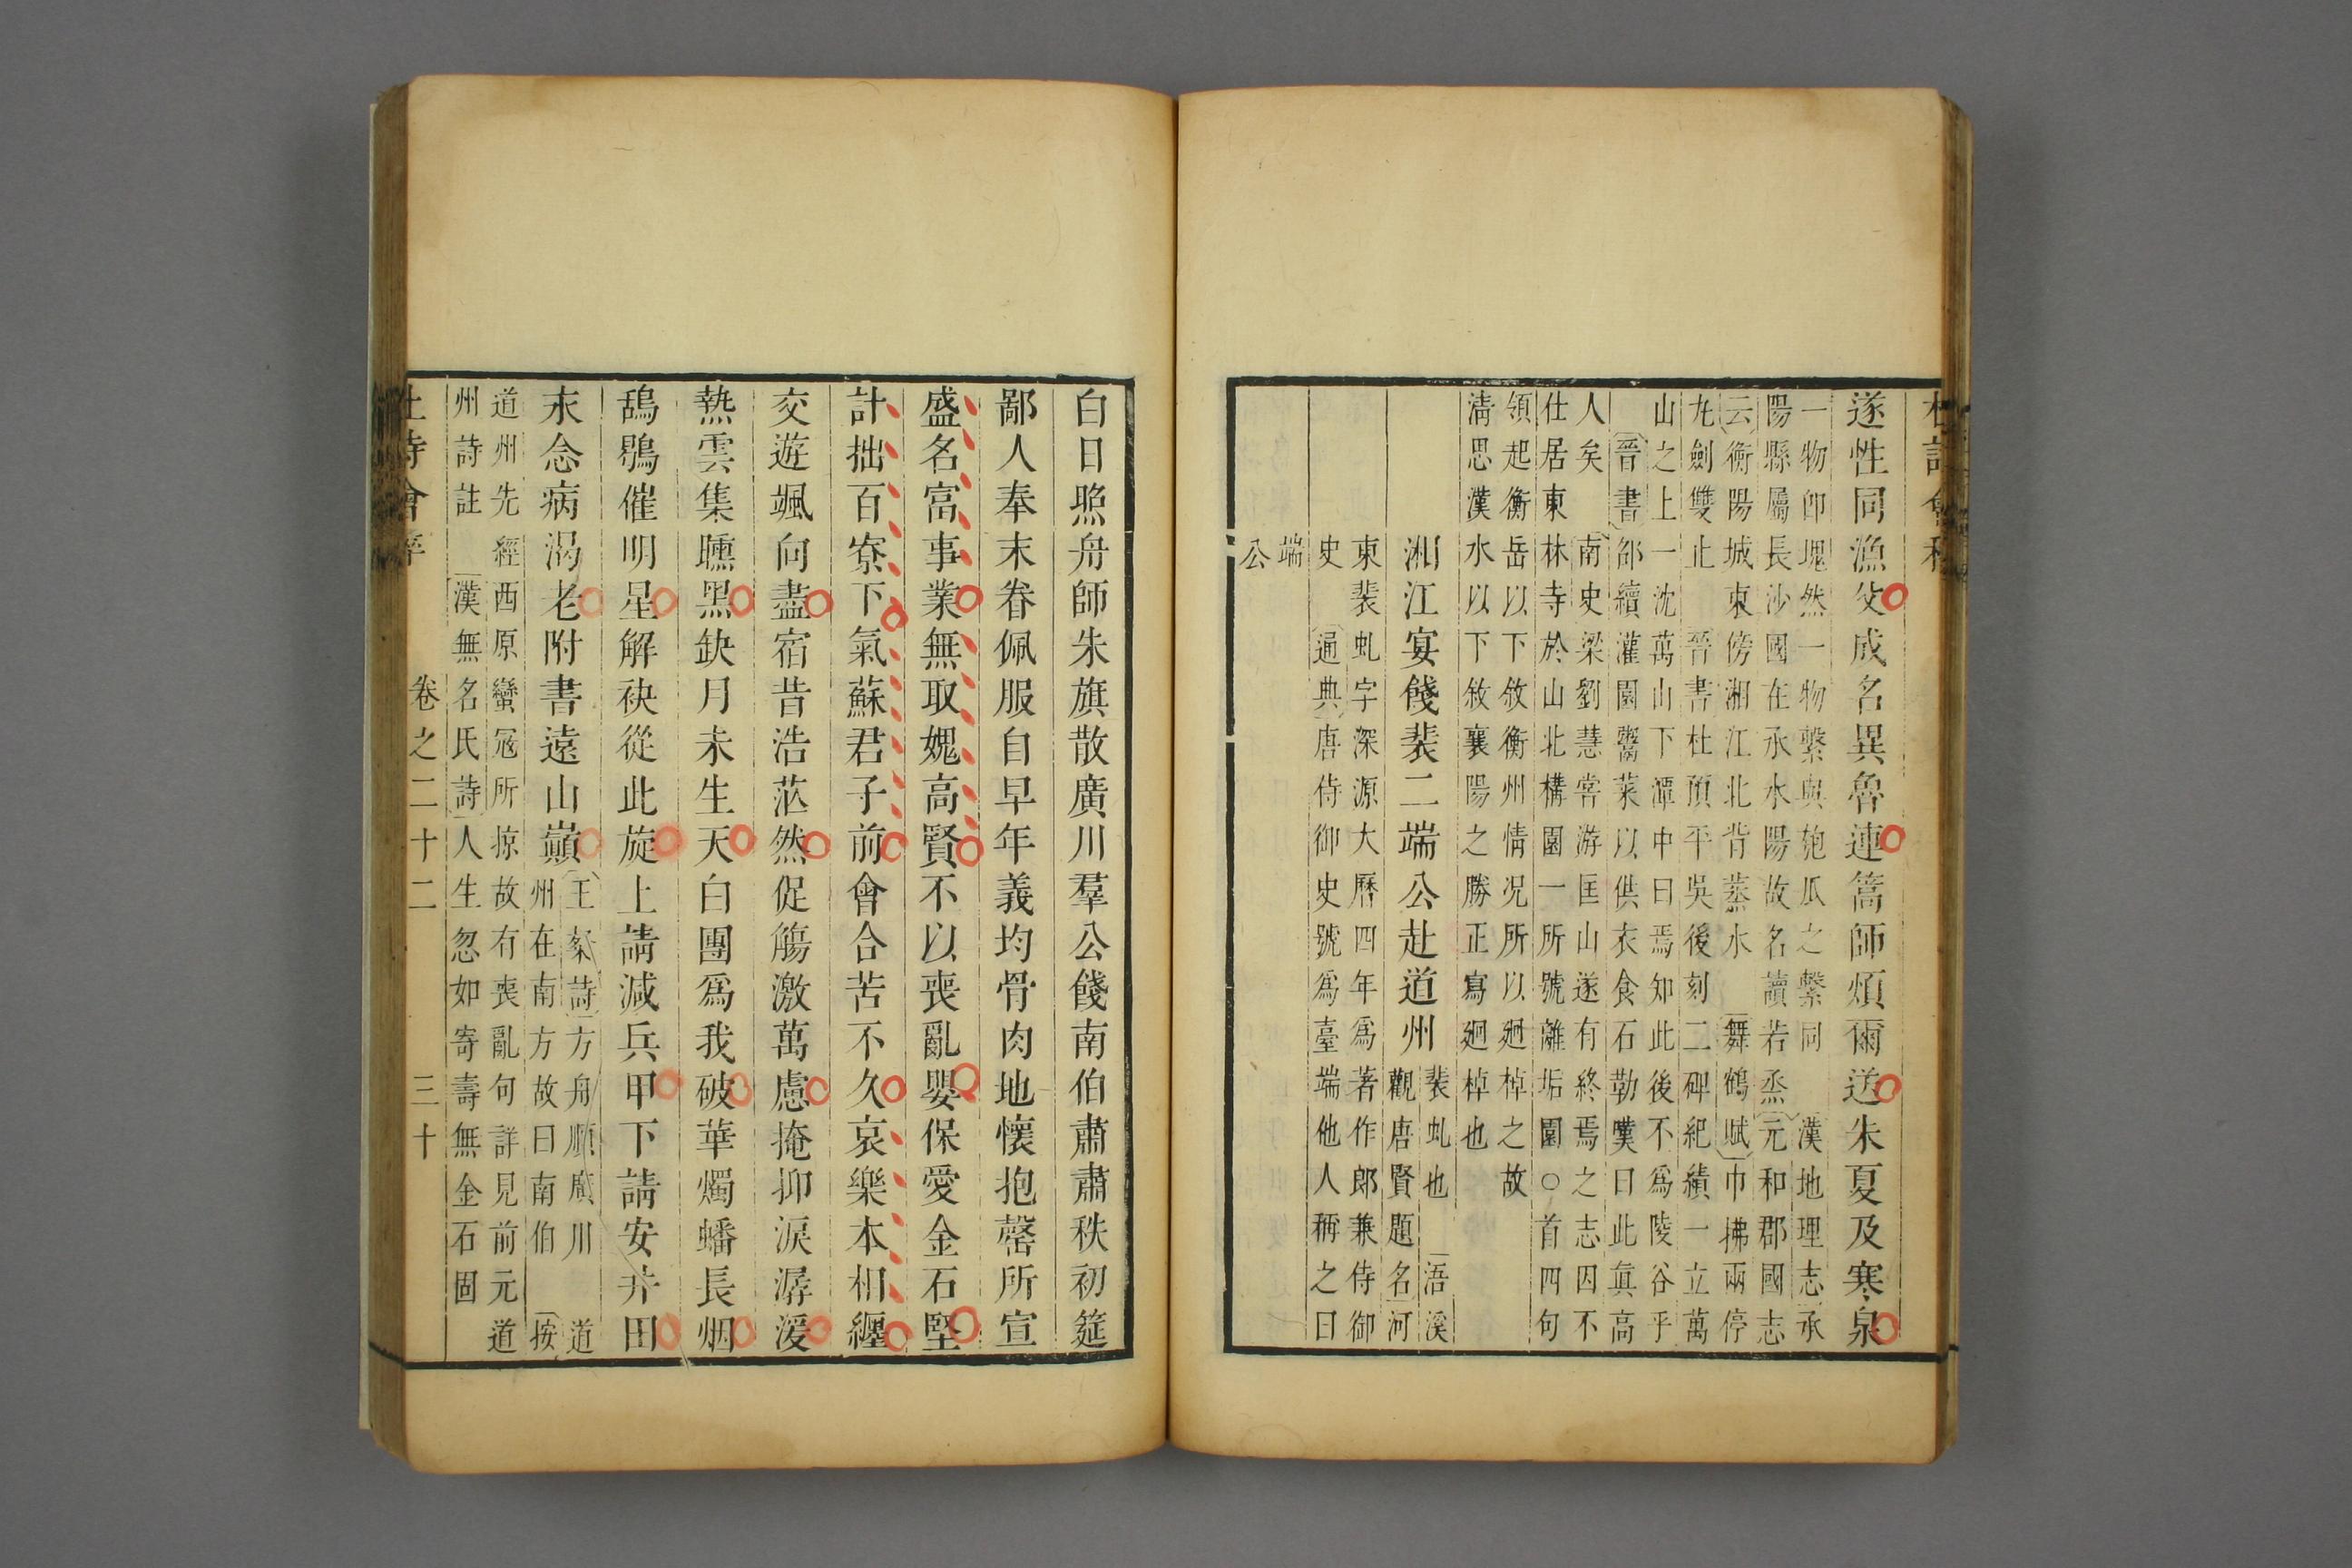 遂性同漁父成名異魯連篙師煩爾送朱夏及寒泉
一物卽塊然一物繫與匏瓜之繫同　漢地理志承
陽縣屬長沙國在承水陽故名讀若烝元和郡國志
云衡陽城東傍湘江北背蒸水　舞鶴賦巾拂兩停
九劍雙止　晉書杜預平吳後刻二碑紀績一立萬
山之上一沈萬山下潭中曰焉知此後不爲陵谷乎
晉書邵續灌園鬻菜以供衣食石勒嘆曰此眞高
人矣　南史梁劉慧斐嘗游匡山遂有終焉之志因不
仕居東林寺於山北構園一所號離垢園○首四句
領起衡岳以下敘衡州情况所以廻棹之故
清思漢水以下敘襄陽之勝正寫廻棹也
湘江宴餞裴二端公赴道州
裴虬也　浯溪
觀唐賢題名河
東裴虬字深源大曆四年爲著作郎兼侍御
史　通典唐侍御史號爲臺端他人稱之曰
端
公
白日照舟師朱旗散廣川羣公餞南伯肅肅秩初筵
鄙人奉末眷佩服自早年義均骨肉地懷抱罄所宣
盛名富事業無取媿高賢不以喪亂嬰保愛金石堅
計拙百寮下氣蘇君子前會合苦不久哀樂本相纏
交遊颯向盡宿昔浩茫然促觴激萬慮掩抑淚潺湲
熱雲集曛黑缺月未生天白團爲我破華燭蟠長烟
鴰鶡催明星解袂從此旋上請減兵甲下請安井田
永念病渴老附書遠山巔
王粲詩方舟順廣川　道
州在南方故曰南伯　按
道州先經西原蠻冦所掠故有喪亂句詳見前元道
州詩註　漢無名氏詩人生忽如寄壽無金石固
卷之二十二　三十